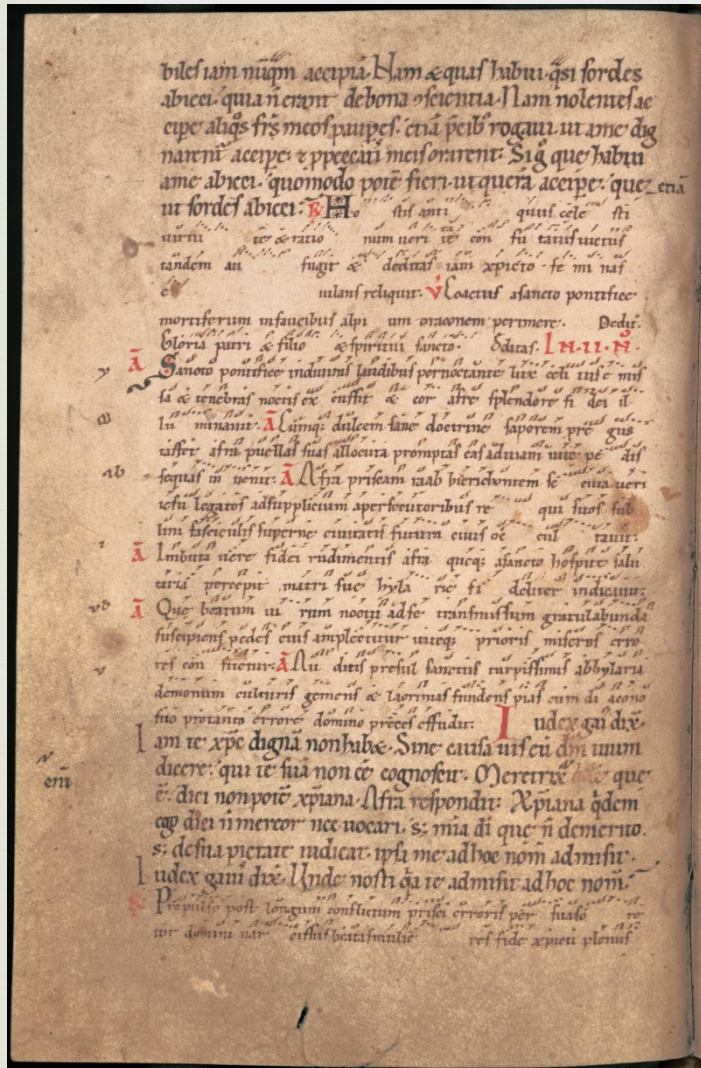 biles iam nūq̄m accipiā. Nam & quas habui. q̄si sordes
abieci. quia ñ erant de bona ɔscientia. Nam nolentes ac
cipe aliq̊s fr̄s meos paupes. etiā p̄cib; rogaui. ut a me dig
narent᷑ accipe. & p peccatis meis orarent. Sig̊ que habui
a me abieci. quomodo potē fieri. ut quera accipe. que etiā
ut sordes abieci. R̄ Ho stis anti quus cele sti
uirtu te & ratio num ueri ta te con fu tatus uictus
tandem au fugit & deditas iam xp̄icto fe mi nas
e iulans reliquit. V̄ Coactus a sancto pontifice
mortiferum in faucibus alpi um draconem perimere. Dedit.
Gloria patri & filio & spiritui sancto. Deditas. IN .II. Ñ.
Ā Sancto pontifice in diuinis laudibus pernoctante lux celi uise mis
sa & tenebras noctis ex cussit & cor afre splendore fi dei il
lu minauit. Ā Cumq; dulcem sane doctrine saporem pre gus
tasset afra puellas suas allocuta promptas eas ad uiam uite pe dis
sequas in uenit. Ā Afra priscam raab hierichontem se cuta ueri
iesu legatos ad supplicium a persecutoribus re qui suos sub
lini fasciculis superne ciuitatis futura ciuis oc cul tauit.
Ā Imbuta uere fidei rudimentis afra queq; a sancto hospite salu
taria percepit matri sue hyla rie fi deliter indicauit.
Ā Que beatum ui rum noctu ad se transmissum gratulabunda
suscipiens pedes eius amplectitur uiteq; prioris miseros erro
res con fitetur. Ā Au ditis presul sanctus turpissimis ab hylaria
demonum culturis gemens & lacrimas fundens pias cum di acono
suo pro tanto errore domino preces effudit. Iudex gai᷑ dix̄.
Iam te xp̄c dignā non hab&. Sine causa uis eū dm̄ tuum
dicere. qui te suā non cē cognoscit. Meretrix que
ē. dici non potē xp̄iana. Afra respondit. Xp̄iana q̄dem
ego dici ñ mereor nec uocari. s; mīa di que ñ de merito
s; de sua pietate iudicat. ipsa me ad hoc nom̄ admisit.
Iudex gaiū dix̄. Unde nosti q̄a te admisit ad hoc nom̄.
R̄ Propulso post longum conflictum prisci erroris per suaso re
uir domini nar cissus beatas mulie res fide xp̄icti plenus
y
a
ab
i
vb
v
enī